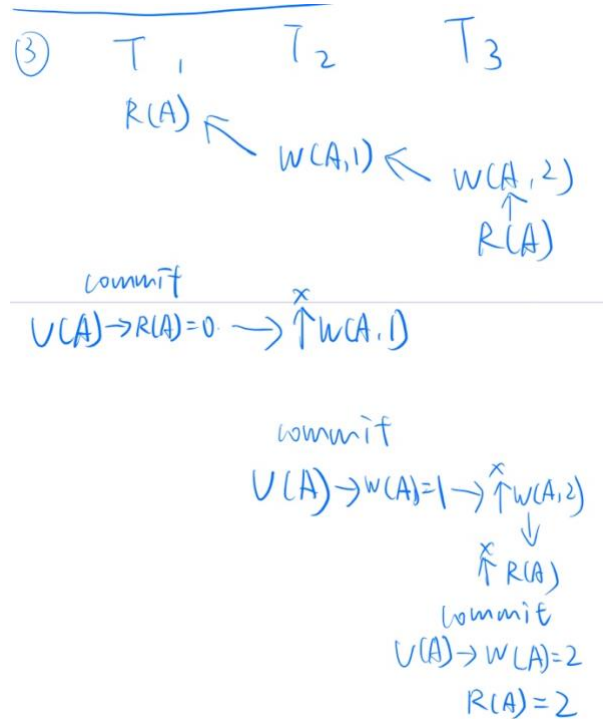 ③ T₁ T₂ T₃
R(A) ↖ W(A,1) ↖ W(A,2)
↑
R(A)
commit
U(A)→R(A)=0 → ↑ˣ W(A,1)
commit
U(A)→W(A)=1→ ↑ˣ W(A,2)
↓
↑ˣ R(A)
commit
U(A)→W(A)=2
R(A)=2